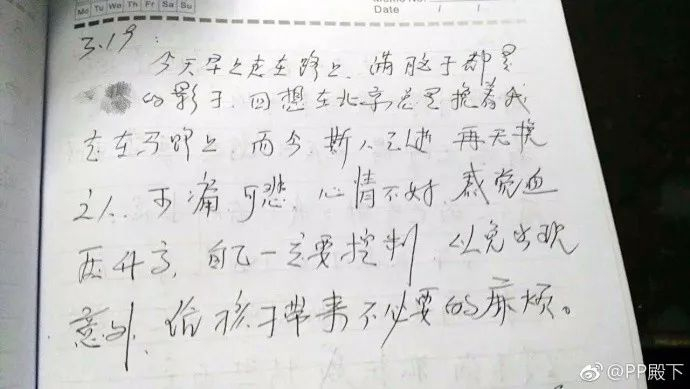 Mo Tu We Th Fr Sa Su
Date / /
3.19:
今天早上走在路上,满脑子都是
的影子,回想在北京总是挽着我
走在马路上,而今斯人已逝,再无挽
之人,可痛可悲,心情不好,感觉血
压升高,自己一定要控制,以免出现
意外,给孩子带来不必要的麻烦。
@PP殿下